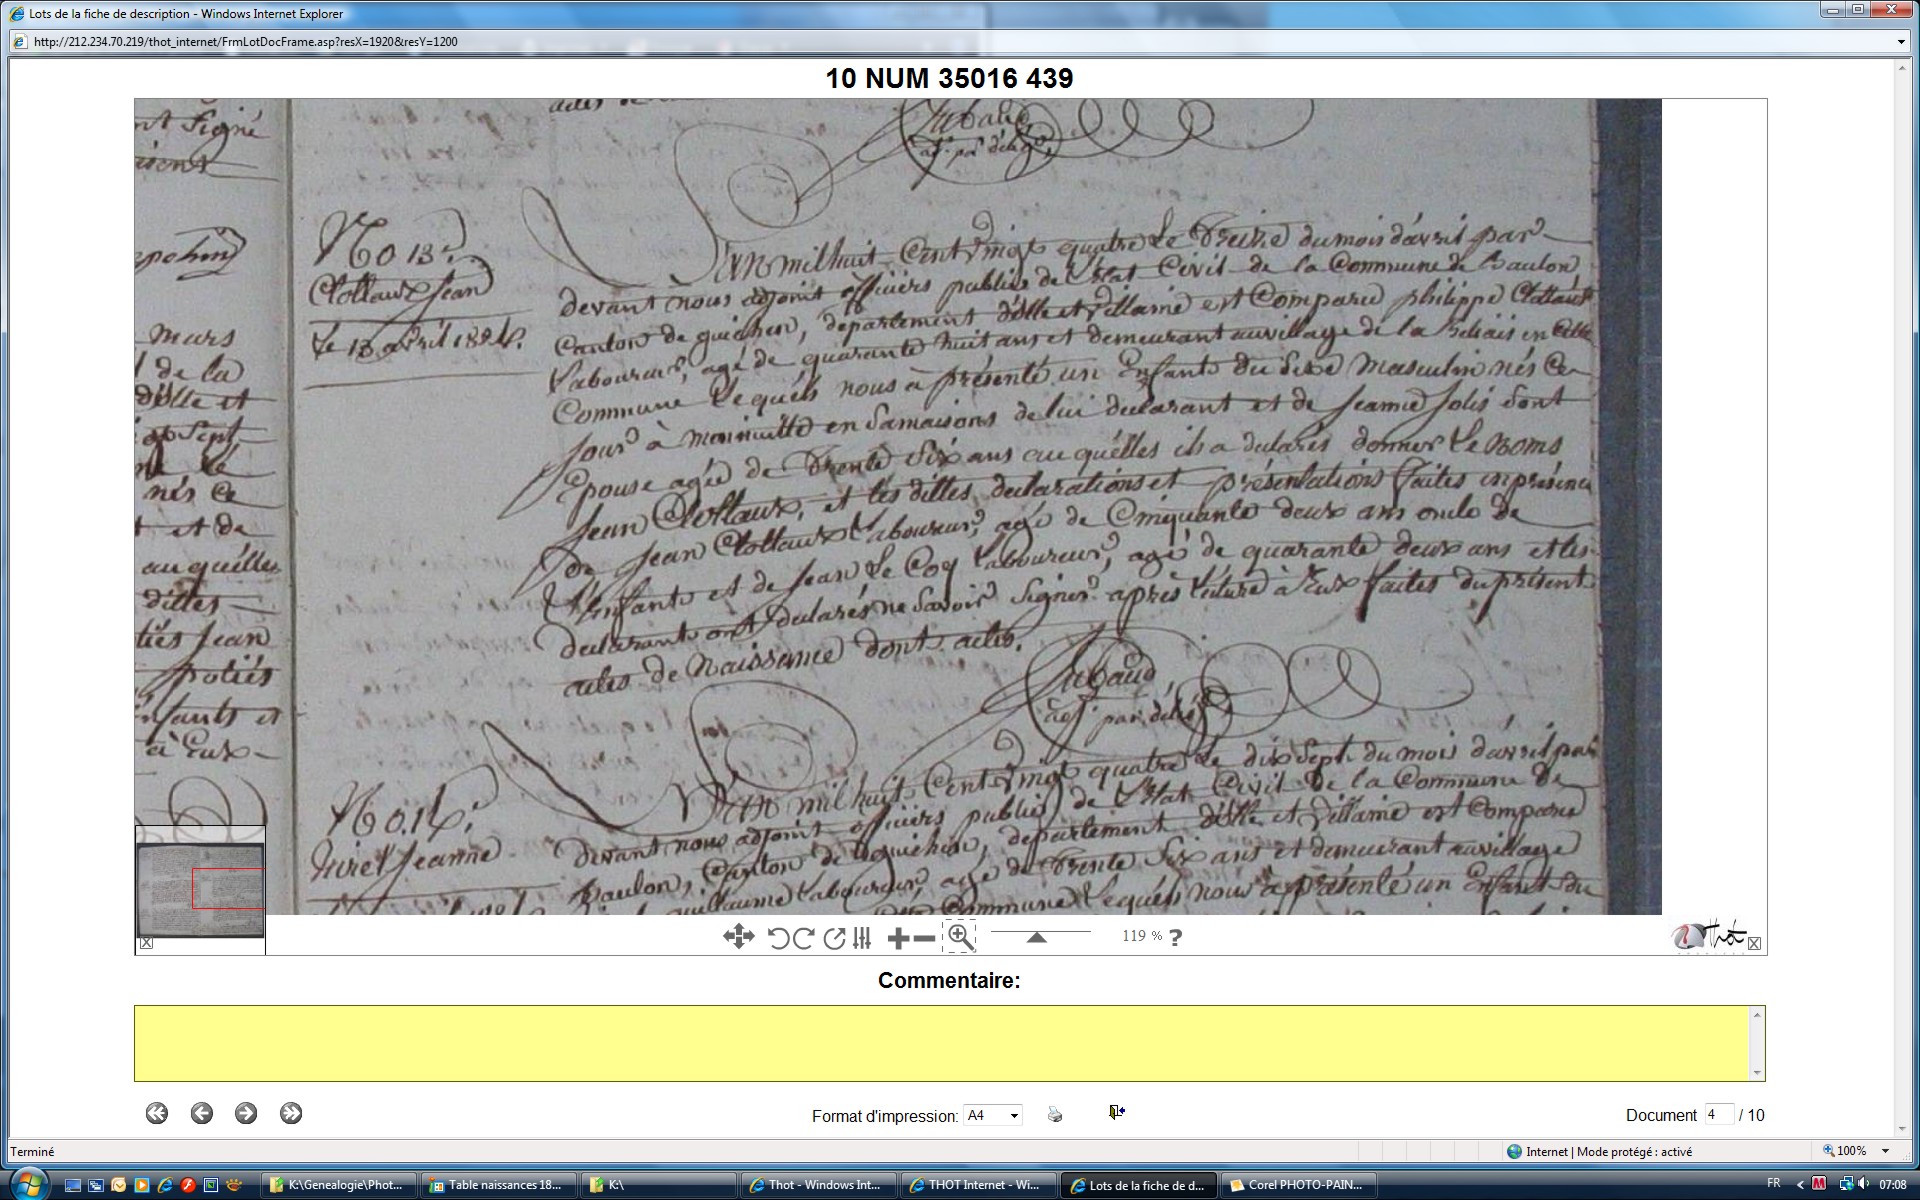 Lots de la fiche de description - Windows Internet Explorer
http://212.234.70.219/thot_internet/FrmLotDocFrame.asp?resX=1920&resY=1200
10 NUM 35016 439
actes de
nt signé
isent
Mars
l de la
d'ille et
sept
né le
nés ce
t et de
au quélles
dittes
tiés Jean
potiés
nfants et
à Eux
Nº 13.
Clottaux Jean
le 13 avril 1824.
L'an mil huit Cent vingt quatre le treize du mois d'avril par
devant nous adjoint officiers publics de L'Etat Civil de la Commune de Baulon
Canton de guichen, departement d'ille et villaine est Comparu philippe Clottaux
Laboureur, agé de quarante huit ans et demeurant au village de la en cette
Commune Lequéls nous à présenté un Enfants du Sexe Masculin nés Ce
Jour à minuitte en Samaisons de lui declarant et de Jeanne Jolis Sont
Epouse agée de trente Six ans au quélles ils a declarés donner Le Noms
Jean Clottaux, et les dittes declarations et présentations faites en présence
de Jean Clottaux Laboureur, agé de Cinquante deux ans oncle de
L'enfants et de Jean Le Coq Laboureur, agé de quarante deux ans et les
declarant ont declarés ne Savoir Signer après lecture à Eux faites du présent
actes de Naissance dont actes.
adj. par délég.
Nº 14.
Jeanne
L'an mil huit Cent vingt quatre Le dix Sept du mois d'avril par
devant nous adjoint officiers publics de L'Etat Civil de la Commune de
Baulon, Canton de guichen, departement d'ille et villaine est Comparu
guillaume Laboureur agé de trente Six ans et demeurant au village
Commune Lequéls nous à présenté un Enfant du
119 % ?
Thot
Commentaire:
Format d'impression: A4
Document 4 / 10
Terminé
Internet | Mode protégé : activé
100%
K:\Genealogie\Phot...
Table naissances 18...
K:\
Thot - Windows Int...
THOT Internet - Wi...
Lots de la fiche de d...
Corel PHOTO-PAIN...
FR
07:08